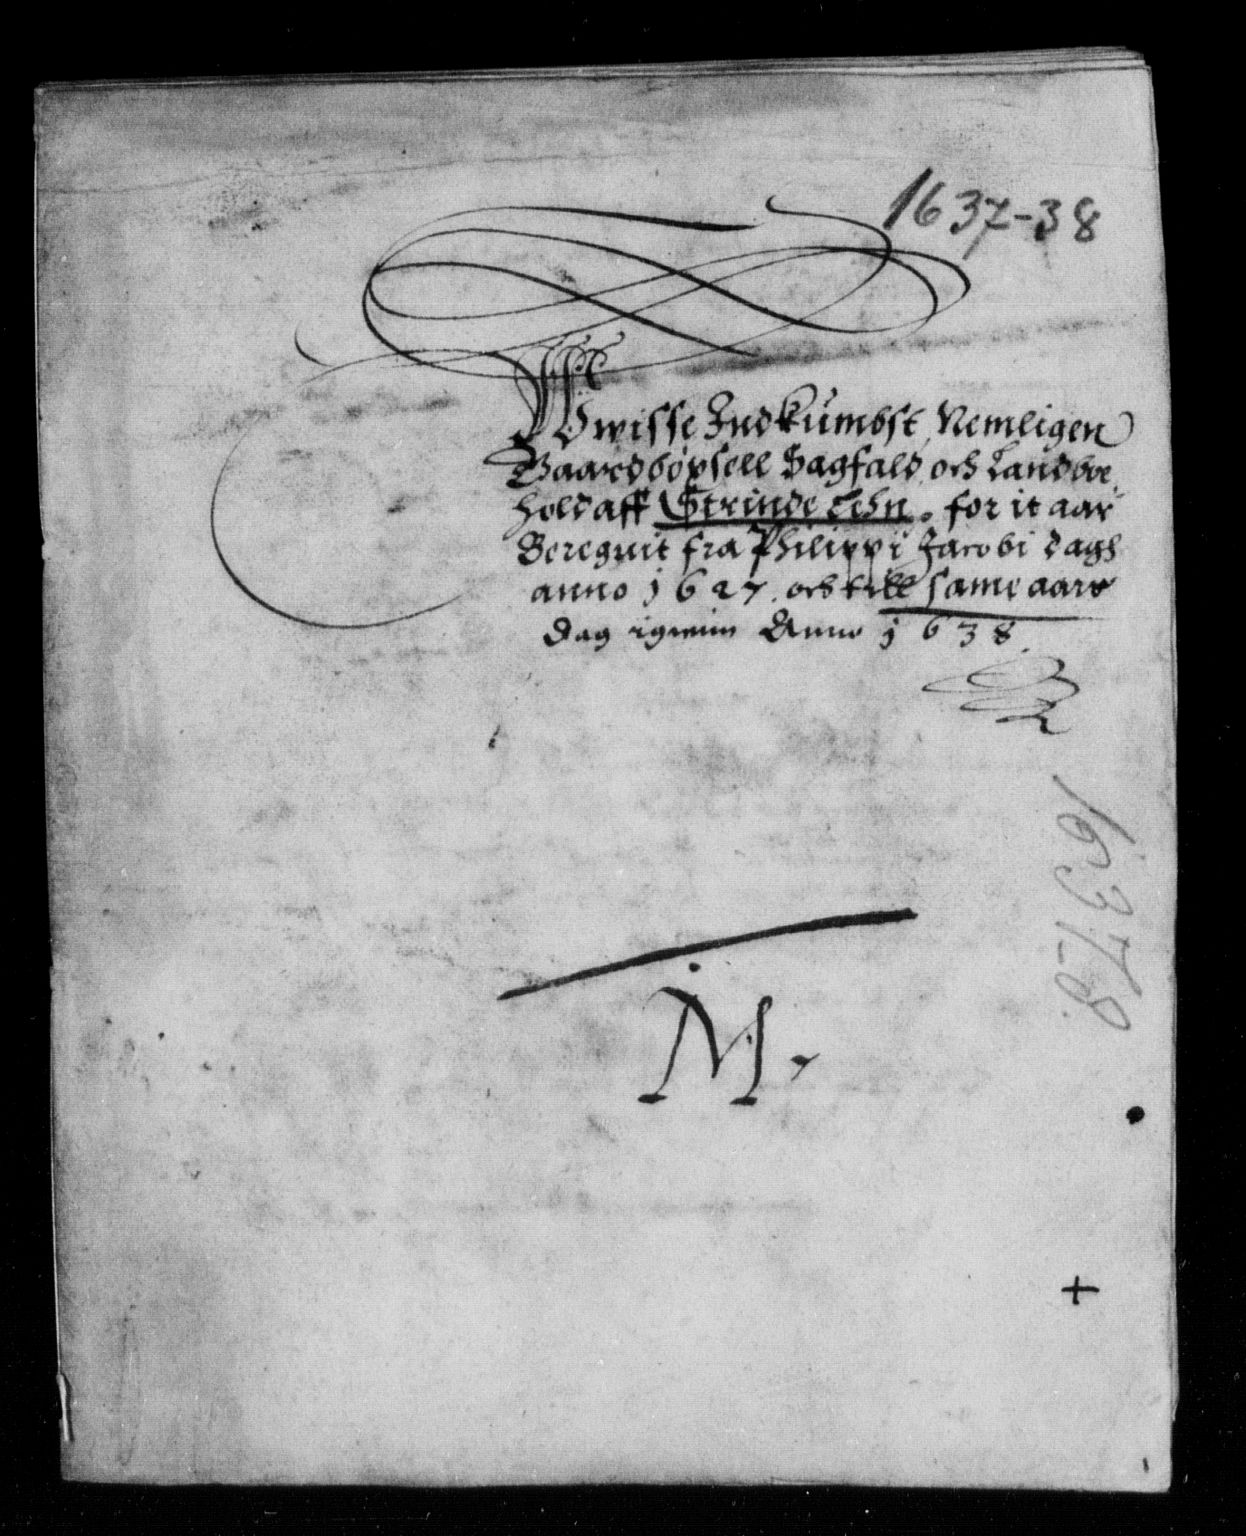 1637-38
Uwisse Indkumbst Nemligen
Gaardbøxsell Sagfald och Landboe
hold aff Strinde Lehn. for it aar
Beregnit fra Philippi Jacobi dagh
anno 1637. och till same aars
dag igienn Anno 1638.
1637-8.
M.